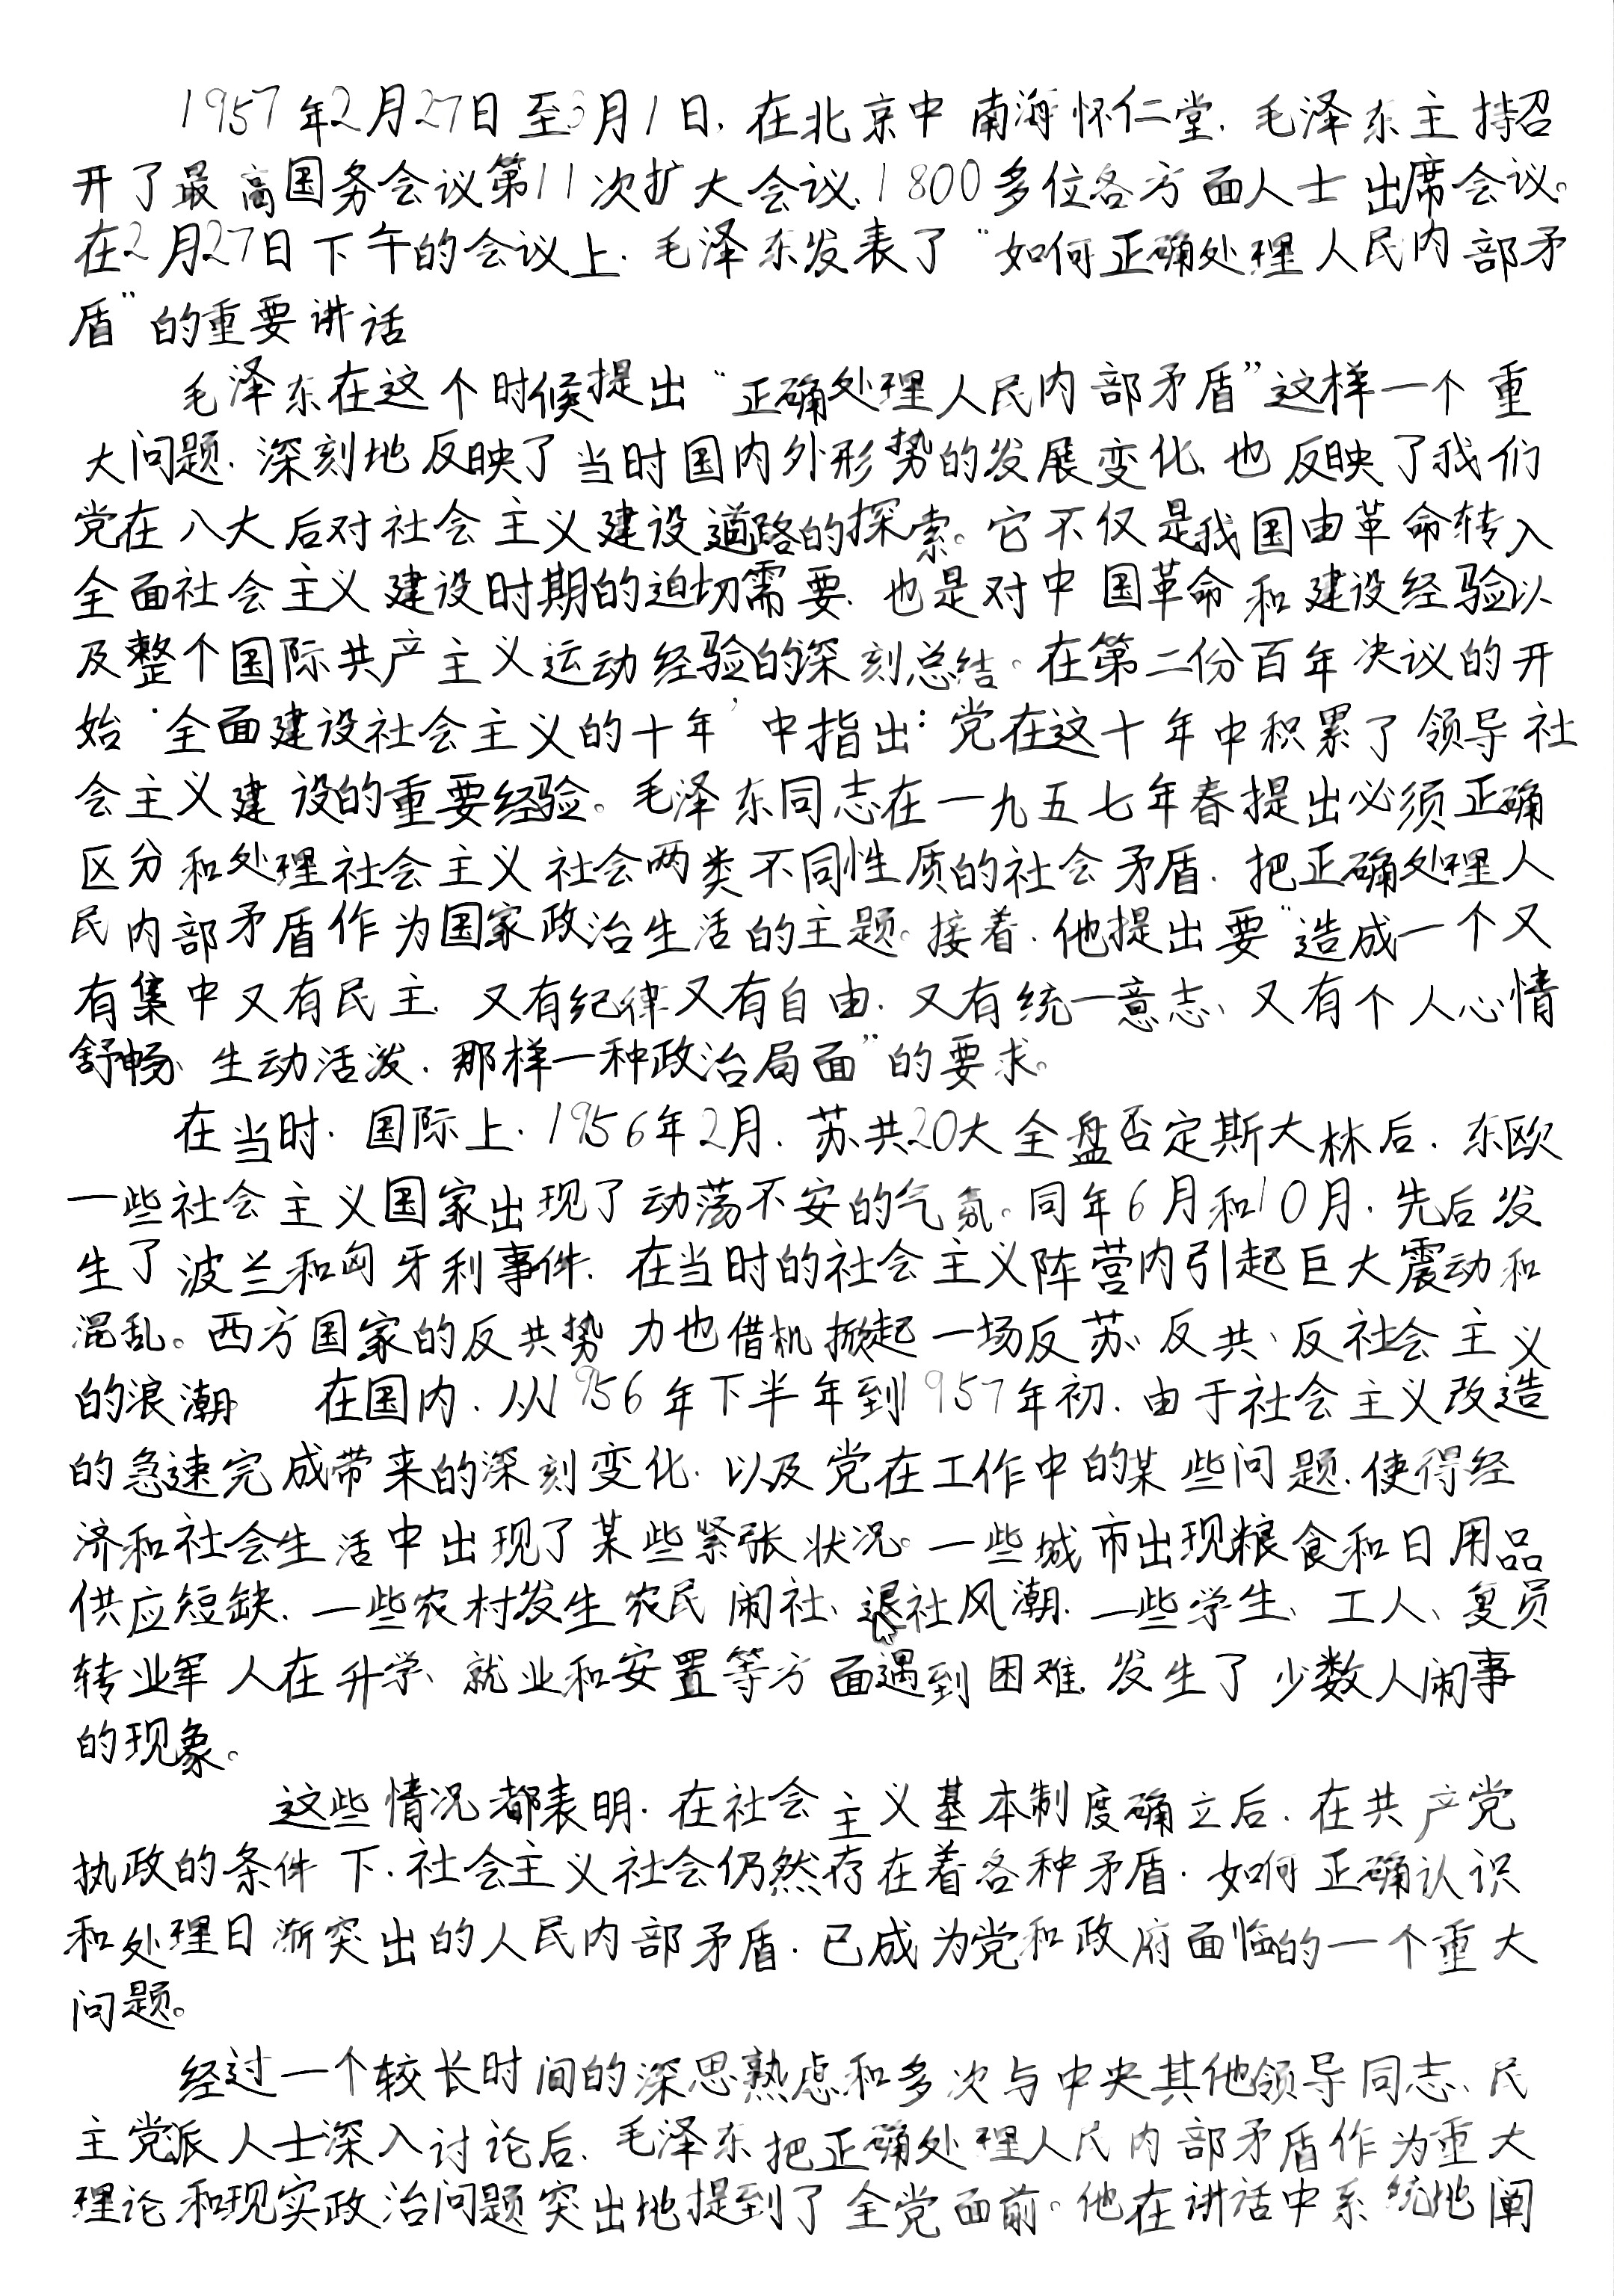 1957年2月27日至3月1日,在北京中南海怀仁堂,毛泽东主持召
开了最高国务会议第11次扩大会议,1800多位各方面人士出席会议。
在2月27日下午的会议上,毛泽东发表了“如何正确处理人民内部矛
盾”的重要讲话
毛泽东在这个时候提出“正确处理人民内部矛盾”这样一个重
大问题,深刻地反映了当时国内外形势的发展变化,也反映了我们
党在八大后对社会主义建设道路的探索。它不仅是我国由革命转入
全面社会主义建设时期的迫切需要,也是对中国革命和建设经验以
及整个国际共产主义运动经验的深刻总结。在第二份百年决议的开
始‘全面建设社会主义的十年’中指出:党在这十年中积累了领导社
会主义建设的重要经验。毛泽东同志在一九五七年春提出必须正确
区分和处理社会主义社会两类不同性质的社会矛盾,把正确处理人
民内部矛盾作为国家政治生活的主题。接着,他提出要“造成一个又
有集中又有民主,又有纪律又有自由,又有统一意志、又有个人心情
舒畅、生动活泼,那样一种政治局面”的要求。
在当时,国际上,1956年2月,苏共20大全盘否定斯大林后,东欧
一些社会主义国家出现了动荡不安的气氛。同年6月和10月,先后发
生了波兰和匈牙利事件,在当时的社会主义阵营内引起巨大震动和
混乱。西方国家的反共势力也借机掀起一场反苏、反共、反社会主义
的浪潮。 在国内,从1956年下半年到1957年初,由于社会主义改造
的急速完成带来的深刻变化,以及党在工作中的某些问题,使得经
济和社会生活中出现了某些紧张状况。一些城市出现粮食和日用品
供应短缺,一些农村发生农民闹社、退社风潮,一些学生、工人、复员
转业军人在升学、就业和安置等方面遇到困难,发生了少数人闹事
的现象。
这些情况都表明,在社会主义基本制度确立后,在共产党
执政的条件下,社会主义社会仍然存在着各种矛盾,如何正确认识
和处理日渐突出的人民内部矛盾,已成为党和政府面临的一个重大
问题。
经过一个较长时间的深思熟虑和多次与中央其他领导同志、民
主党派人士深入讨论后,毛泽东把正确处理人民内部矛盾作为重大
理论和现实政治问题突出地提到了全党面前。他在讲话中系统地阐